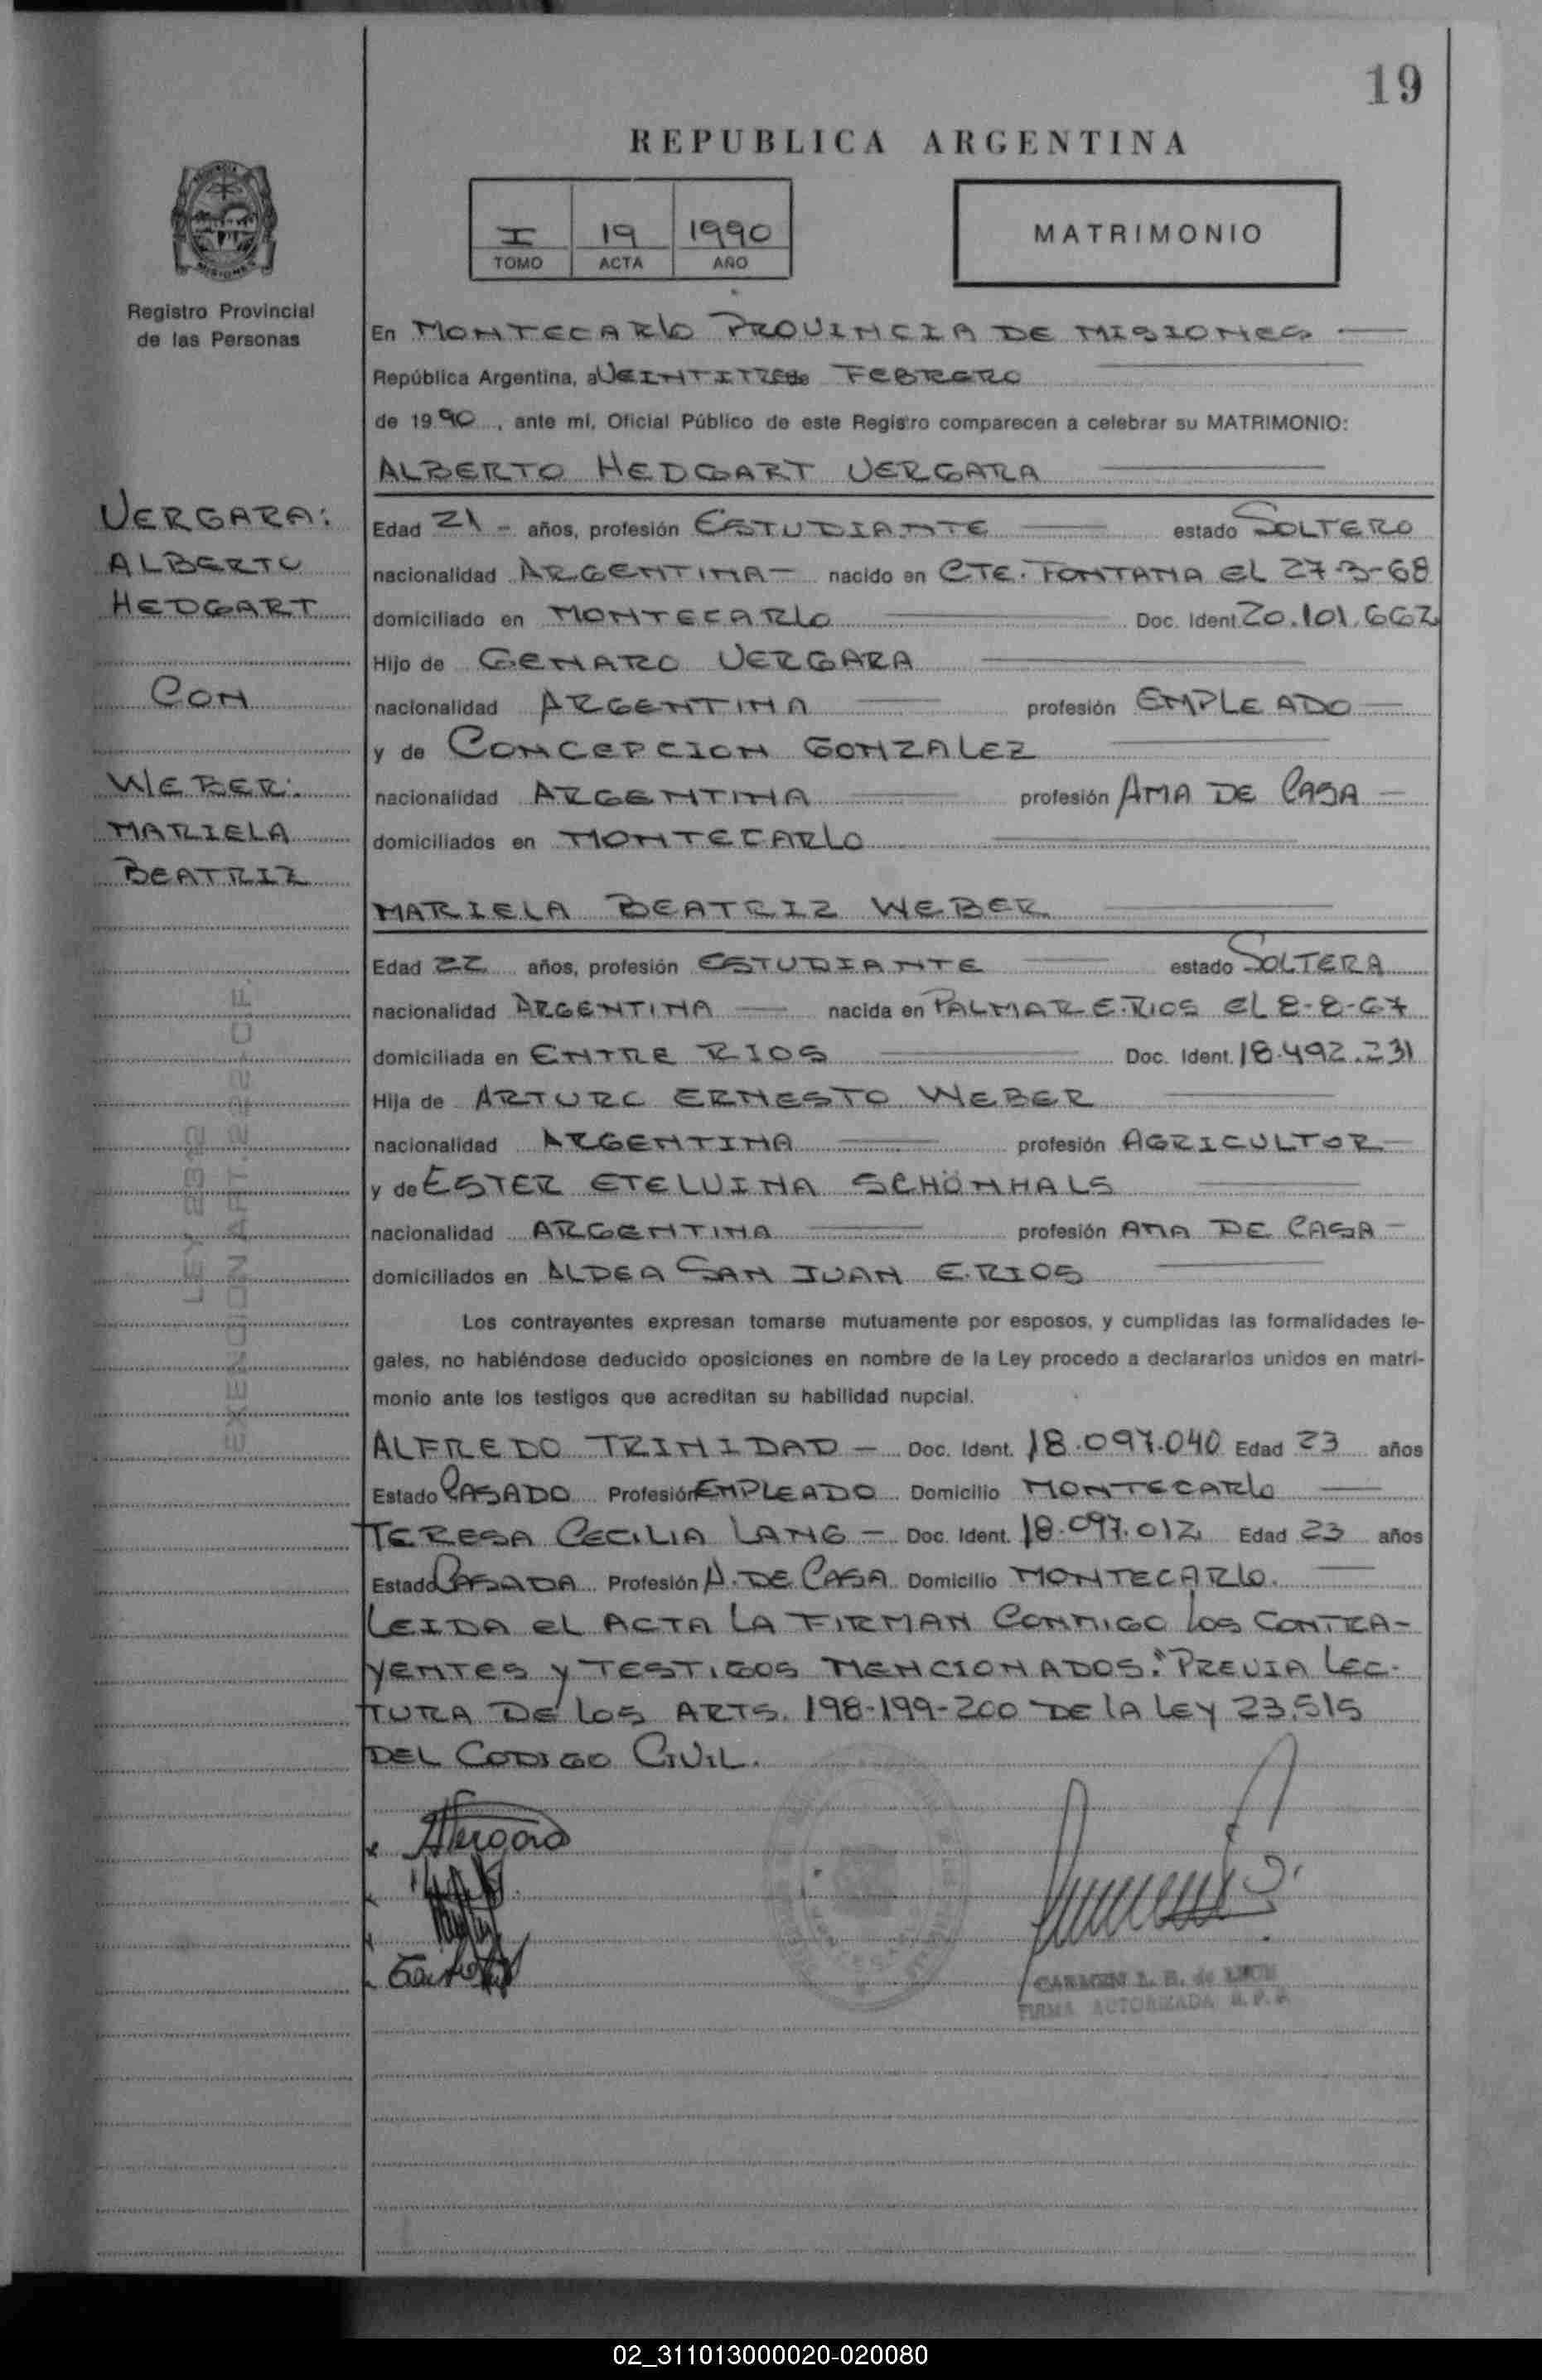 19
REPUBLICA ARGENTINA
I 19 1990
TOMO ACTA AÑO
MATRIMONIO
Registro Provincial
de las Personas
MISIONES
En MONTECARLO PROVINCIA DE MISIONES
República Argentina, a VEINTITRES de FEBRERO
de 1990, ante mí, Oficial Público de este Registro comparecen a celebrar su MATRIMONIO:
ALBERTO HEDGART VERGARA
VERGARA:
ALBERTO
HEDGART
CON
WEBER:
MARIELA
BEATRIZ
Edad 21 - años, profesión ESTUDIANTE estado SOLTERO
nacionalidad ARGENTINA - nacido en CTE. FONTANA EL 27-3-68
domiciliado en MONTECARLO Doc. Ident. 20.101.662
Hijo de GENARO VERGARA
nacionalidad ARGENTINA profesión EMPLEADO
y de CONCEPCION GONZALEZ
nacionalidad ARGENTINA profesión AMA DE CASA
domiciliados en MONTECARLO
MARIELA BEATRIZ WEBER
Edad 22 años, profesión ESTUDIANTE estado SOLTERA
nacionalidad ARGENTINA nacida en PALMAR E.RIOS EL 8-8-67
domiciliada en ENTRE RIOS Doc. Ident. 18.492.231
Hija de ARTURO ERNESTO WEBER
nacionalidad ARGENTINA profesión AGRICULTOR
y de ESTER ETELVINA SCHÖNHALS
nacionalidad ARGENTINA profesión AMA DE CASA
domiciliados en ALDEA SAN JUAN E.RIOS
Los contrayentes expresan tomarse mutuamente por esposos, y cumplidas las formalidades le-
gales, no habiéndose deducido oposiciones en nombre de la Ley procedo a declararlos unidos en matri-
monio ante los testigos que acreditan su habilidad nupcial.
ALFREDO TRINIDAD - Doc. Ident. 18.097.040 Edad 23 años
Estado CASADO Profesión EMPLEADO Domicilio MONTECARLO
TERESA CECILIA LANG - Doc. Ident. 18.097.012 Edad 23 años
Estado CASADA Profesión A. DE CASA Domicilio MONTECARLO.
LEIDA EL ACTA LA FIRMAN CONMIGO LOS CONTRA-
YENTES Y TESTIGOS MENCIONADOS." PREVIA LEC-
TURA DE LOS ARTS. 198-199-200 DE LA LEY 23.515
DEL CODIGO CIVIL.
EXENCION ART.
LEY
CARMEN
FIRMA AUTORIZADA
02_311013000020-020080